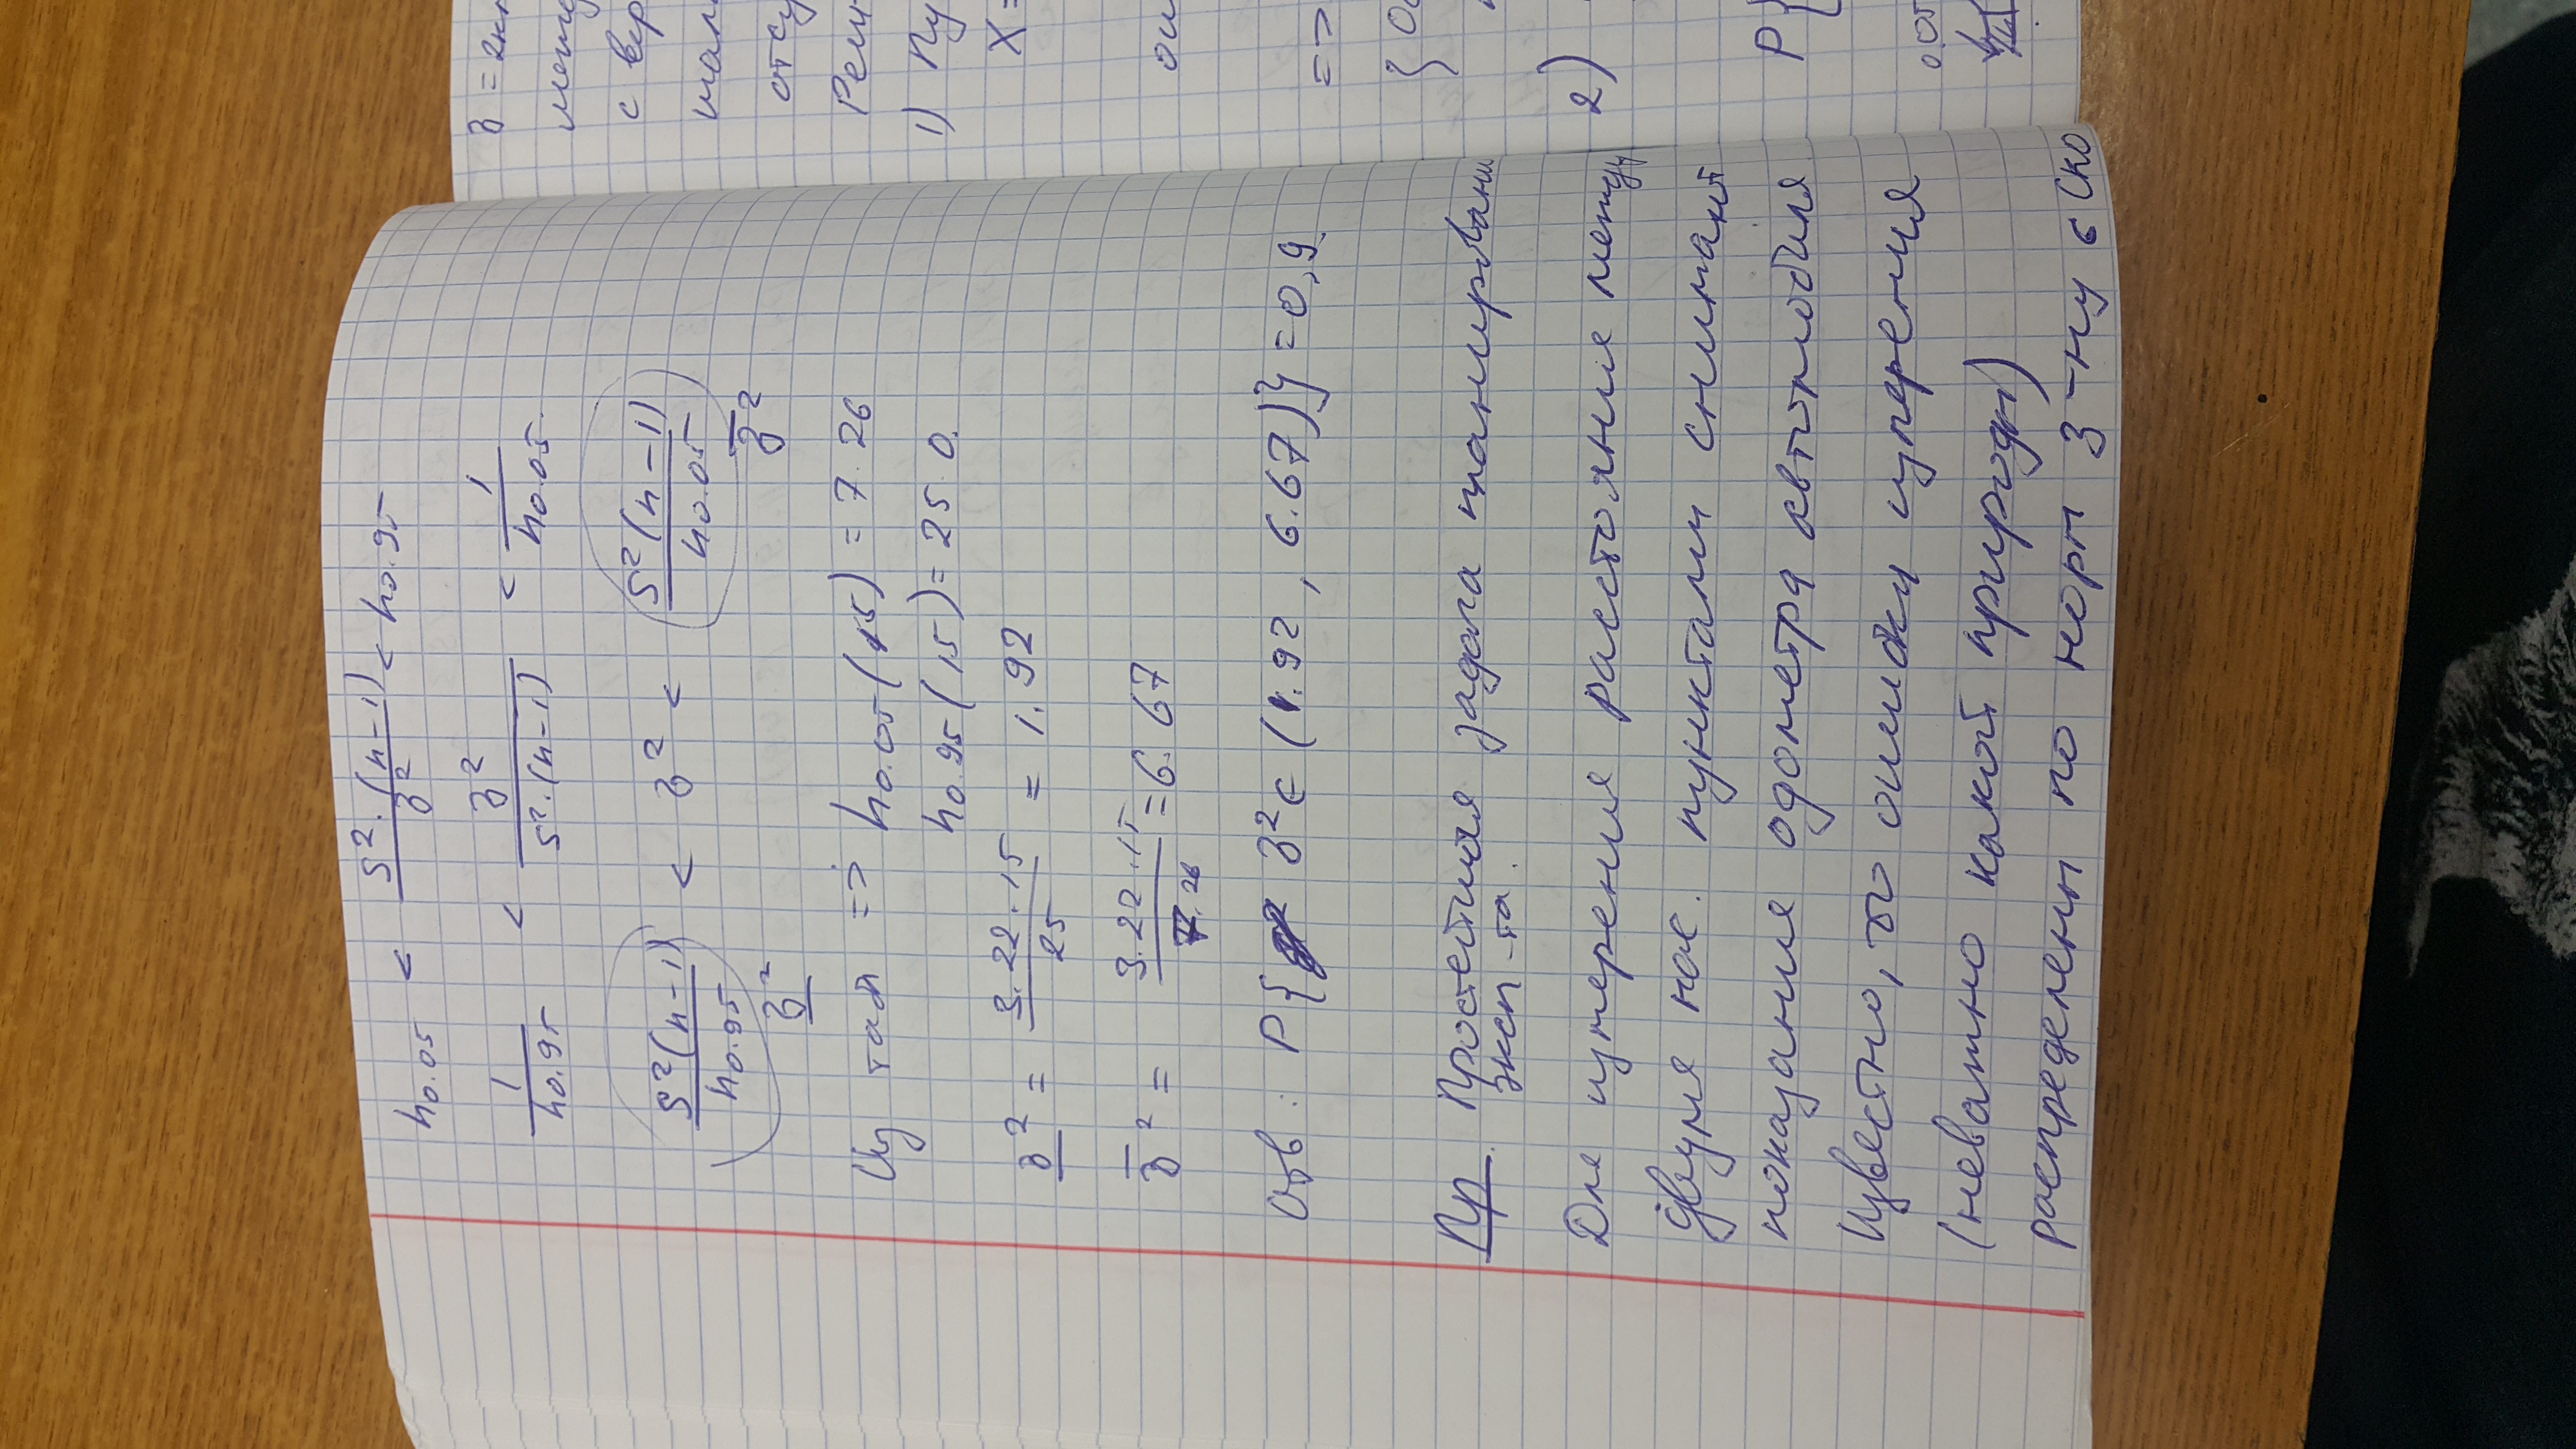 h₀.₀₅ < S²·(n-1)/σ² < h₀.₉₅
1/h₀.₉₅ < σ²/S²·(n-1) < 1/h₀.₀₅
S²(n-1)/h₀.₉₅ < σ² < S²(n-1)/h₀.₀₅
σ̲² σ̅²
Из табл => h₀.₀₅(15) = 7.26
h₀.₉₅(15) = 25.0.
σ̲² = 3.22·15/25 = 1.92
σ̅² = 3.22·15/7.26 = 6.67
Отв: P{σ²∈(1.92, 6.67)} = 0,9
Пр. Простейшая задача планировани
эксп-та.
Для измерения расстояния между
двумя нас. пунктами снимают
показания одометра автомобиля
Известно, что ошибки измерения
(неважно какой природы)
распределены по норм з-ну с СКО
σ = 2к
межд
с вер
отсу
Реш
1) Пу
X =
ош
=>
2)
P{
0.05